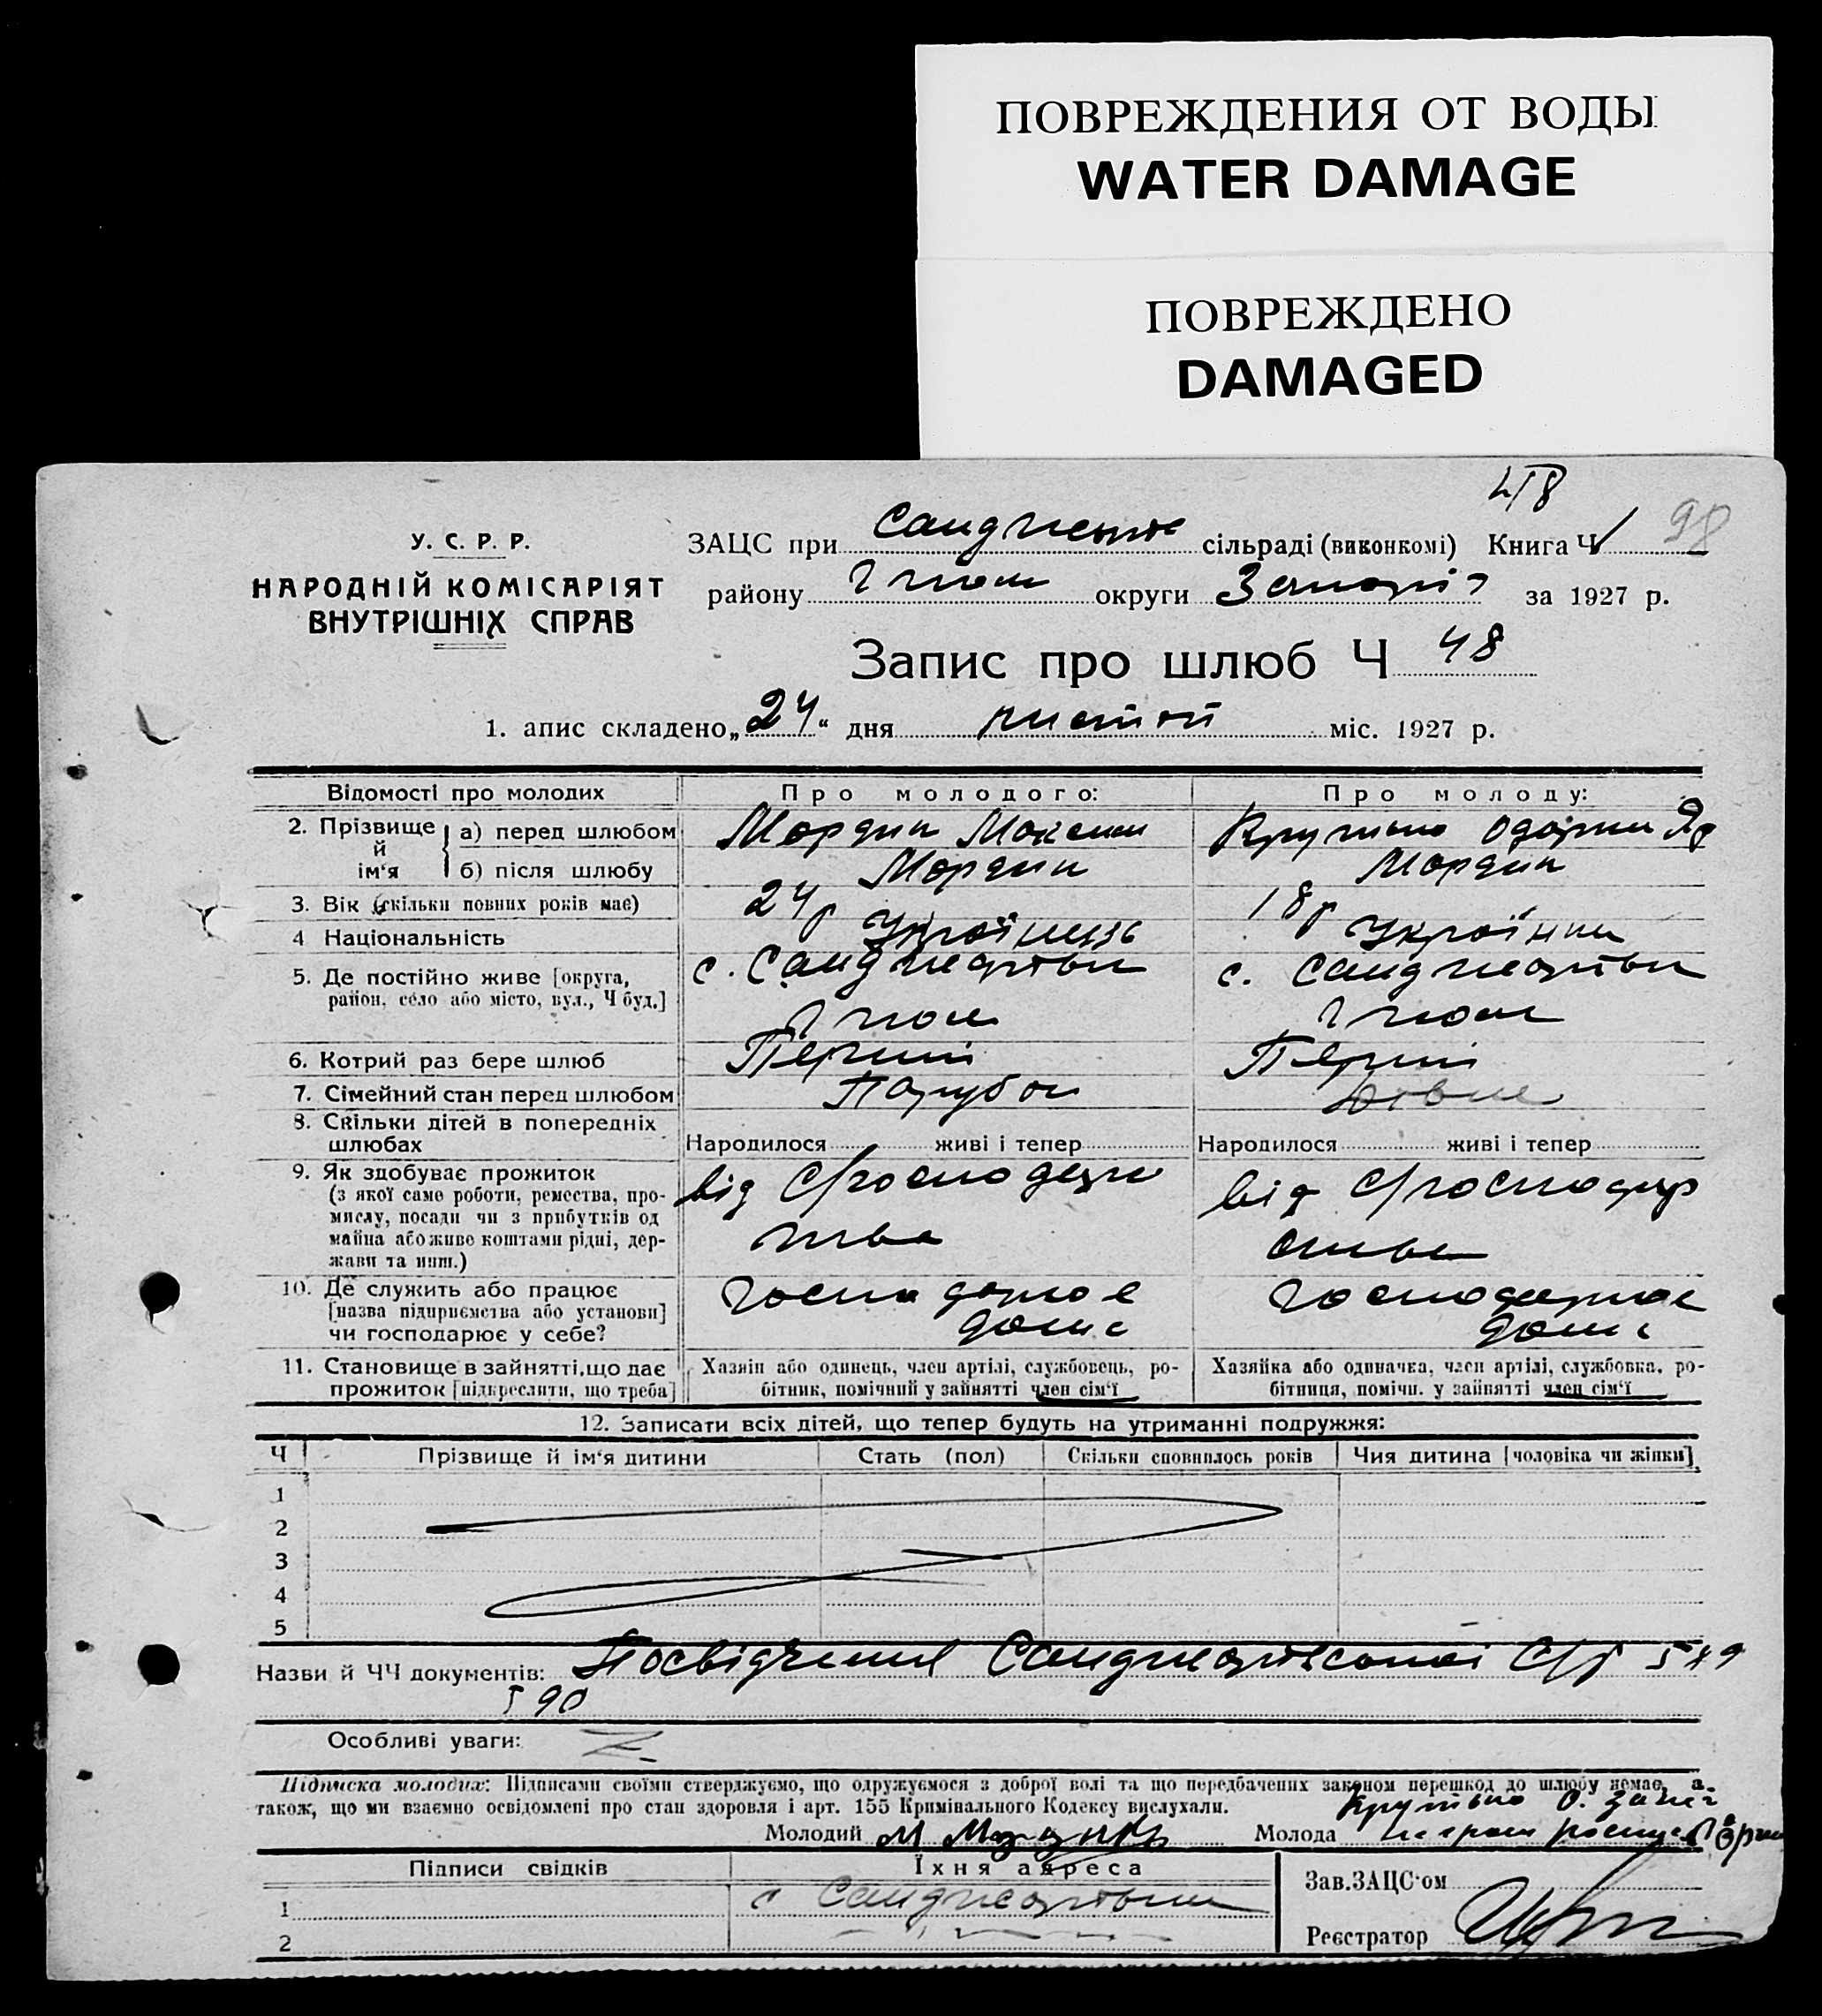 ПОВРЕЖДЕНИЯ ОТ ВОДЫ
WATER DAMAGE
ПОВРЕЖДЕНО
DAMAGED
98
У. С. Р. Р.
НАРОДНІЙ КОМІСАРІЯТ
ВНУТРІШНІХ СПРАВ
ЗАЦС при сільраді (виконкомі) Книга Ч
району округи за 1927 р.
Запис про шлюб Ч 48
1. апис складено „24“ дня міс. 1927 р.
Відомості про молодих Про молодого: Про молоду:
2. Прізвище й ім‘я
а) перед шлюбом Мордик Максим
б) після шлюбу Мордик Мордик
3. Вік (скільки повних років має) 24 р 18 р
4 Національність Українець Українка
5. Де постійно живе [округа,
район, село або місто, вул., Ч буд.]
6. Котрий раз бере шлюб Перший Перший
7. Сімейний стан перед шлюбом Парубок
8. Скільки дітей в попередніх
шлюбах Народилося живі і тепер Народилося живі і тепер
9. Як здобуває прожиток
(з якої само роботи, ремества, про-
мислу, посади чи з прибутків од
майна або живе коштами рідні, дер-
жави та инш.)
від С/господарс від С/господар
тва ства
10. Де служить або працює
[назва підприємства або установи]
чи господарює у себе?
господарює господарює
дома дома
11. Становище в зайнятті, що дає
прожиток [підкреслити, що треба]
Хазяін або одинець, член артілі, службовець, ро-
бітник, помічний у зайнятті член сім‘ї
Хазяйка або одиначка, член артілі, службовка, ро-
бітниця, помічн. у зайнятті член сім‘ї
12. Записати всіх дітей, що тепер будуть на утриманні подружжя:
Ч Прізвище й ім‘я дитини Стать (пол) Скільки сповнилось років Чия дитина [чоловіка чи жінки]
1
2
3
4
5
Назви й ЧЧ документів: Посвідчення С/р 589
590
Особливі уваги:
Підписка молодих: Підписами своїми стверджуємо, що одружуємося з доброї волі та що передбачених законом перешкод до шлюбу немає, а
також, що ми взаємно освідомлені про стан здоровля і арт. 155 Кримінального Кодексу вислухали.
Молодий М Молода
Підписи свідків Їхня адреса
Зав. ЗАЦС‘ом
1
2
Реєстратор